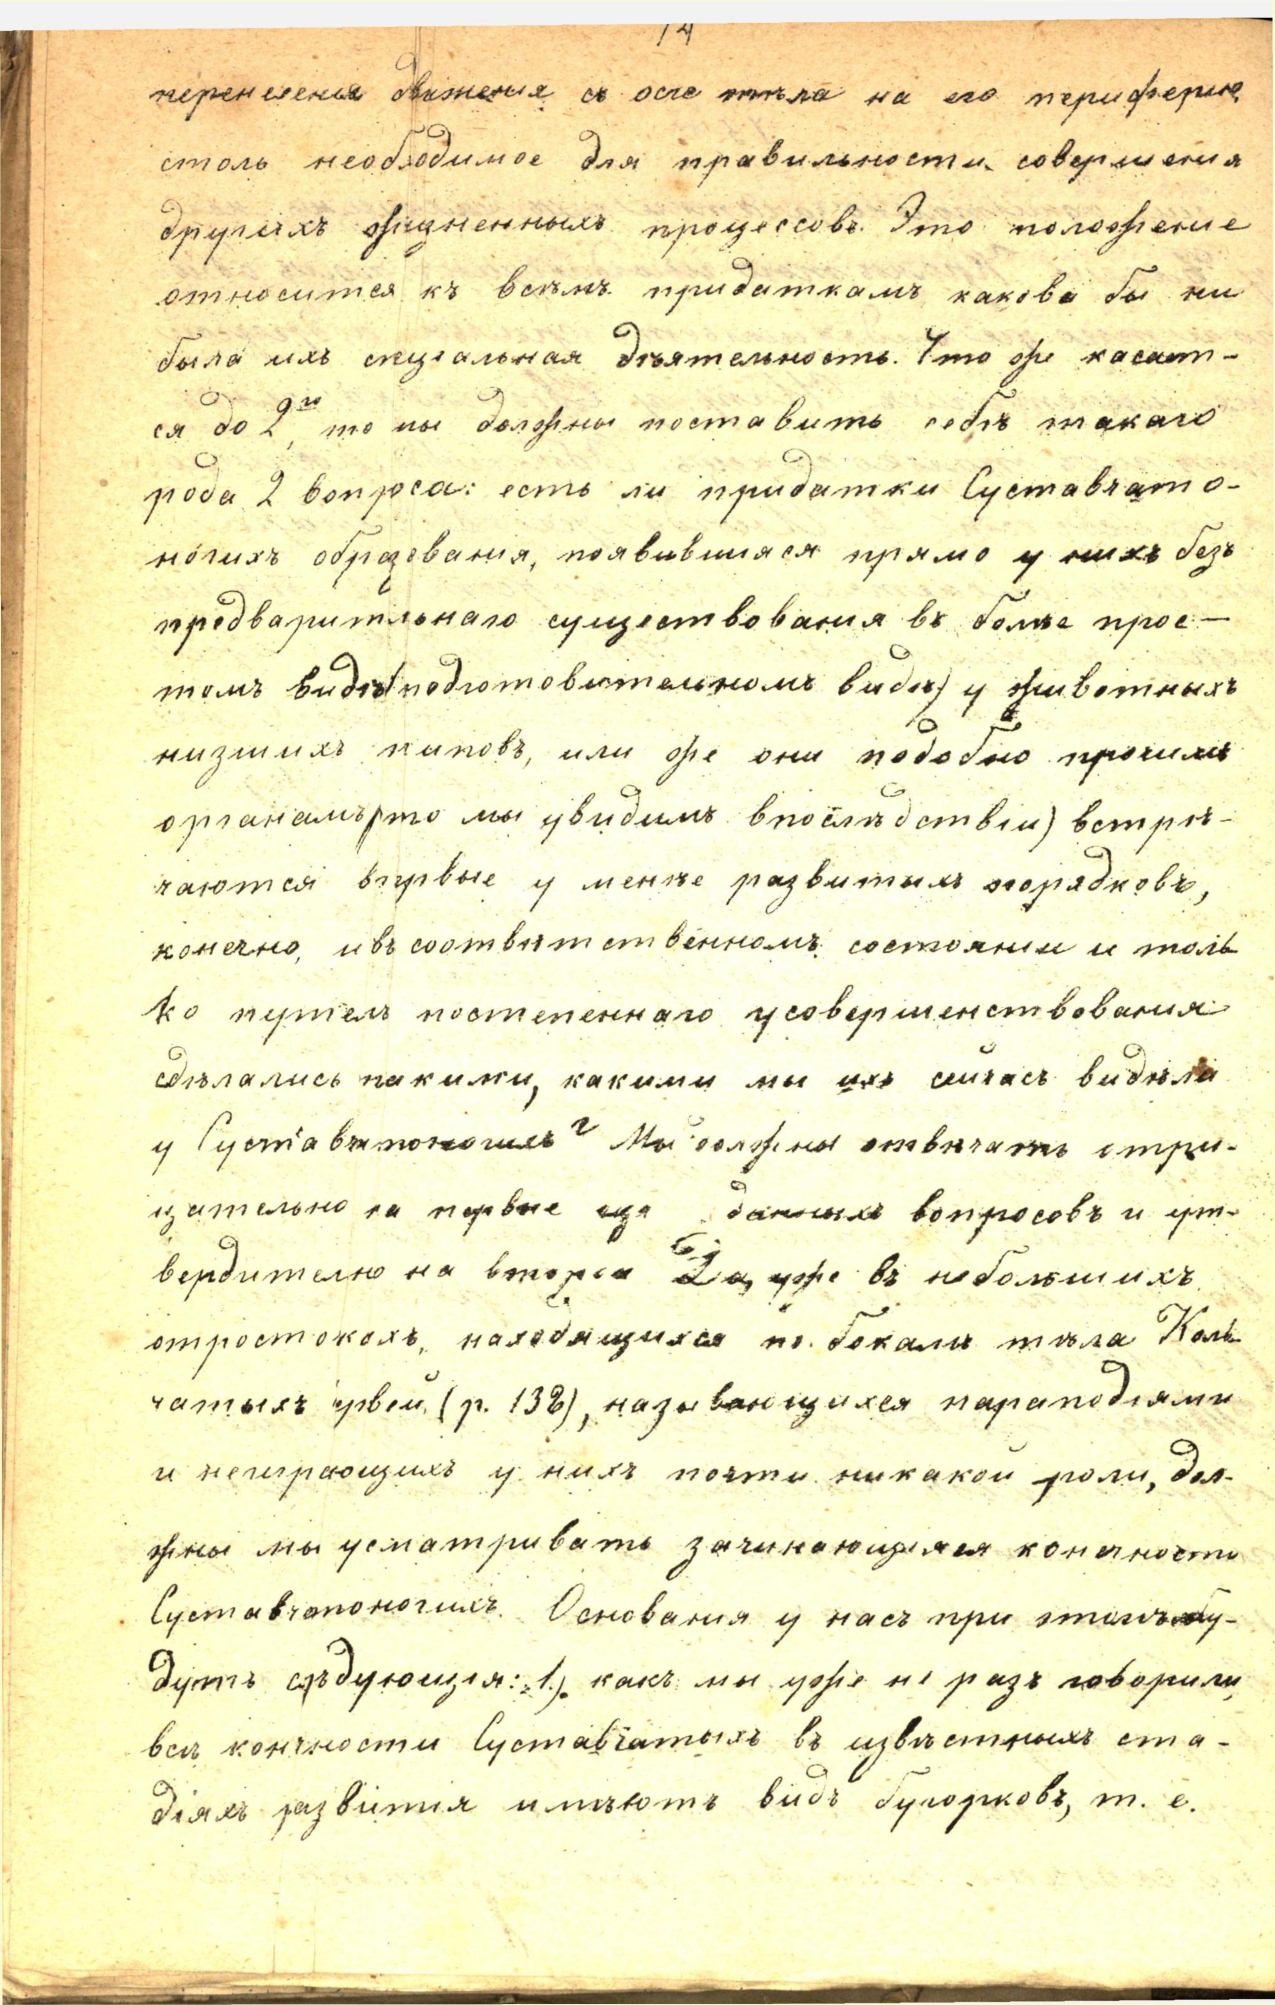 14
перенесенiя движенiя съ оси тѣла на его периферiю,
столь необходимое для правильности совершенiя
другихъ жизненныхъ процессовъ. Это положенiе
относится къ всѣмъ придаткамъ какова бы ни
была ихъ спецiальная дѣятельность. Что же касает-
ся до 2го, то мы должны поставить себѣ такаго
рода 2 вопроса: есть ли придатки Суставчато-
ногихъ образованiя, появившiяся прямо у нихъ безъ
предварительнаго существованiя въ болѣе прос-
томъ видѣ (подготовительномъ видѣ) у животныхъ
низшихъ типовъ, или же они подобно прочимъ
органамъ (что мы увидимъ впослѣдствiи) встрѣ-
чаются впервые у менѣе развитыхъ порядковъ,
конечно, и въ соотвѣтственномъ состоянiи и толь
ко путемъ постепеннаго усовершенствованiя
сдѣлались такими, какими мы ихъ сейчасъ видѣли
у Суставчатоногихъ? Мы должны отвѣчать отри-
цательно на первые изъ данныхъ вопросовъ и ут-
вердительно на второй уже въ небольшихъ
отросткахъ, находящихся по бокамъ тѣла Коль
чатыхъ червей (р. 132), называющихся параподiями
и неиграющихъ у нихъ почти никакой роли, дол-
жны мы усматривать зачинающiяся конечности
Суставчатоногихъ. Основанiя у насъ при этомъ бу-
дутъ слѣдующiя: 1). какъ мы уже не разъ говорили,
всѣ конечности Суставчатыхъ въ извѣстныхъ ста-
дiяхъ развитiя имѣютъ видъ бугорковъ, т. е.